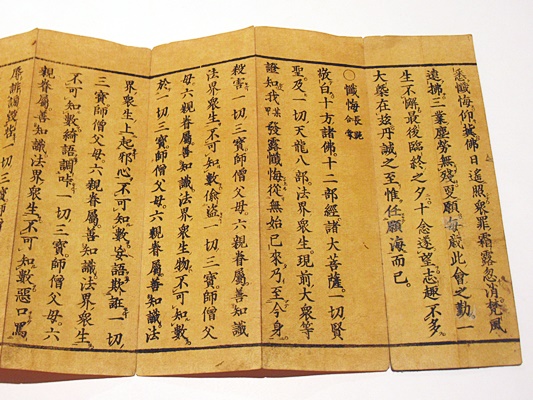 悉懺悔仰冀佛日遙照衆罪霜露忽消梵風
遠拂三業塵勞無殘更願每歳此會之勤一
生不懈最後臨終之夕十念遂望志趣不多
大槩在玆丹誠之至惟任願海而已。
〇懺悔 長跪合掌
敬白十方諸佛十二部經諸大菩薩一切賢
聖及一切天龍八部法界衆生現前大衆等
證知我某甲發露懺悔從無始已來乃至今身
殺害一切三寳師僧父母六親眷屬善知識
法界衆生不可知數偷盜一切三寳師僧父
母六親眷屬善知識法界衆生物不可知數
於一切三寳師僧父母六親眷屬善知識法
界衆生上起邪心不可知數妄語欺誑一切
三寳師僧父母六親眷屬善知識法界衆生
不可知數綺語調哢一切三寳師僧父母六
親眷屬善知識法界衆生不可知數惡口罵
辱誹謗毀呰一切三寳師僧